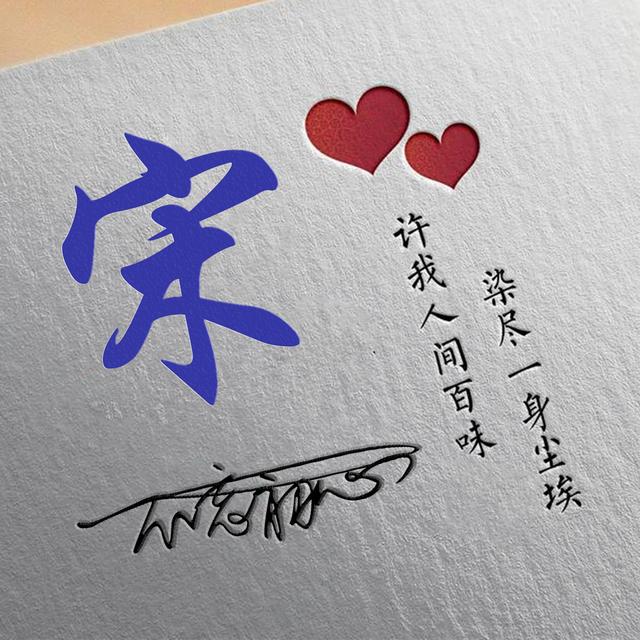 宋
许我人间百味
染尽一身尘埃